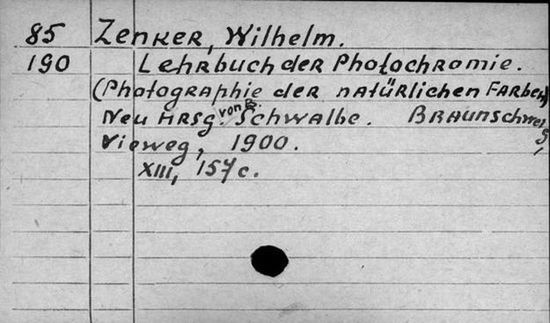 85 Zenker, Wilhelm.
190 Lehrbuch der Photochromie.
(Photographie der natürlichen Farben)
Neu hrsg. von B. Schwalbe. Braunschweig,
Vieweg, 1900.
XIII, 157 c.